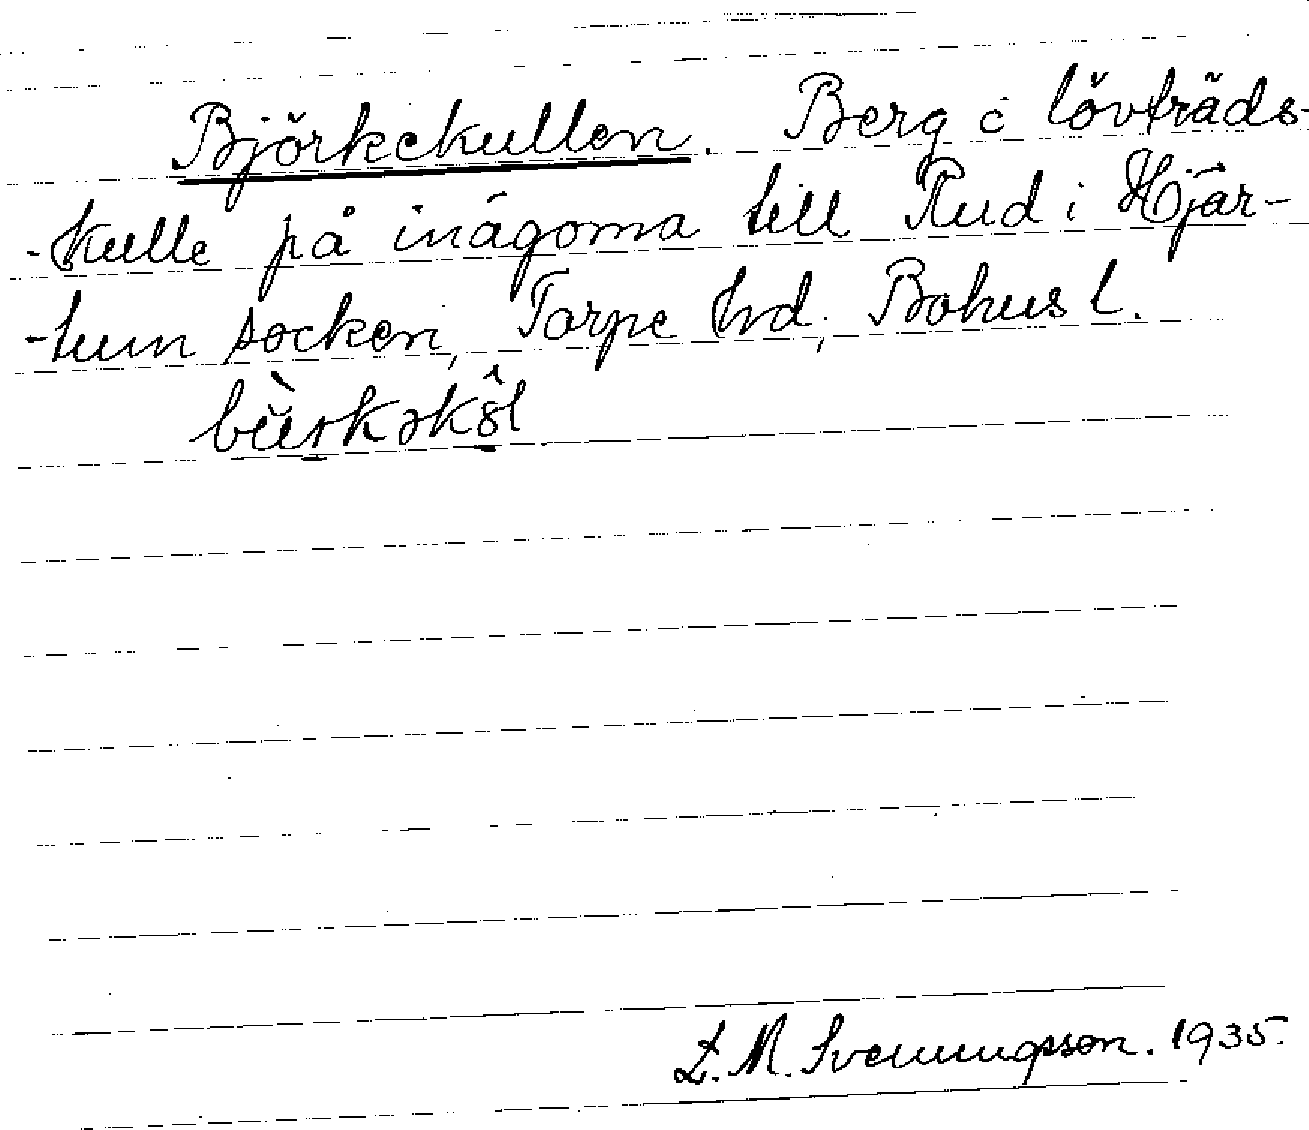 Björkekullen. Berg c lövträds-
-kulle på inägorna till Rud i Hjär-
-tum socken, Torpe hrd, Bohus l.
L. M. Svenungsson. 1935.